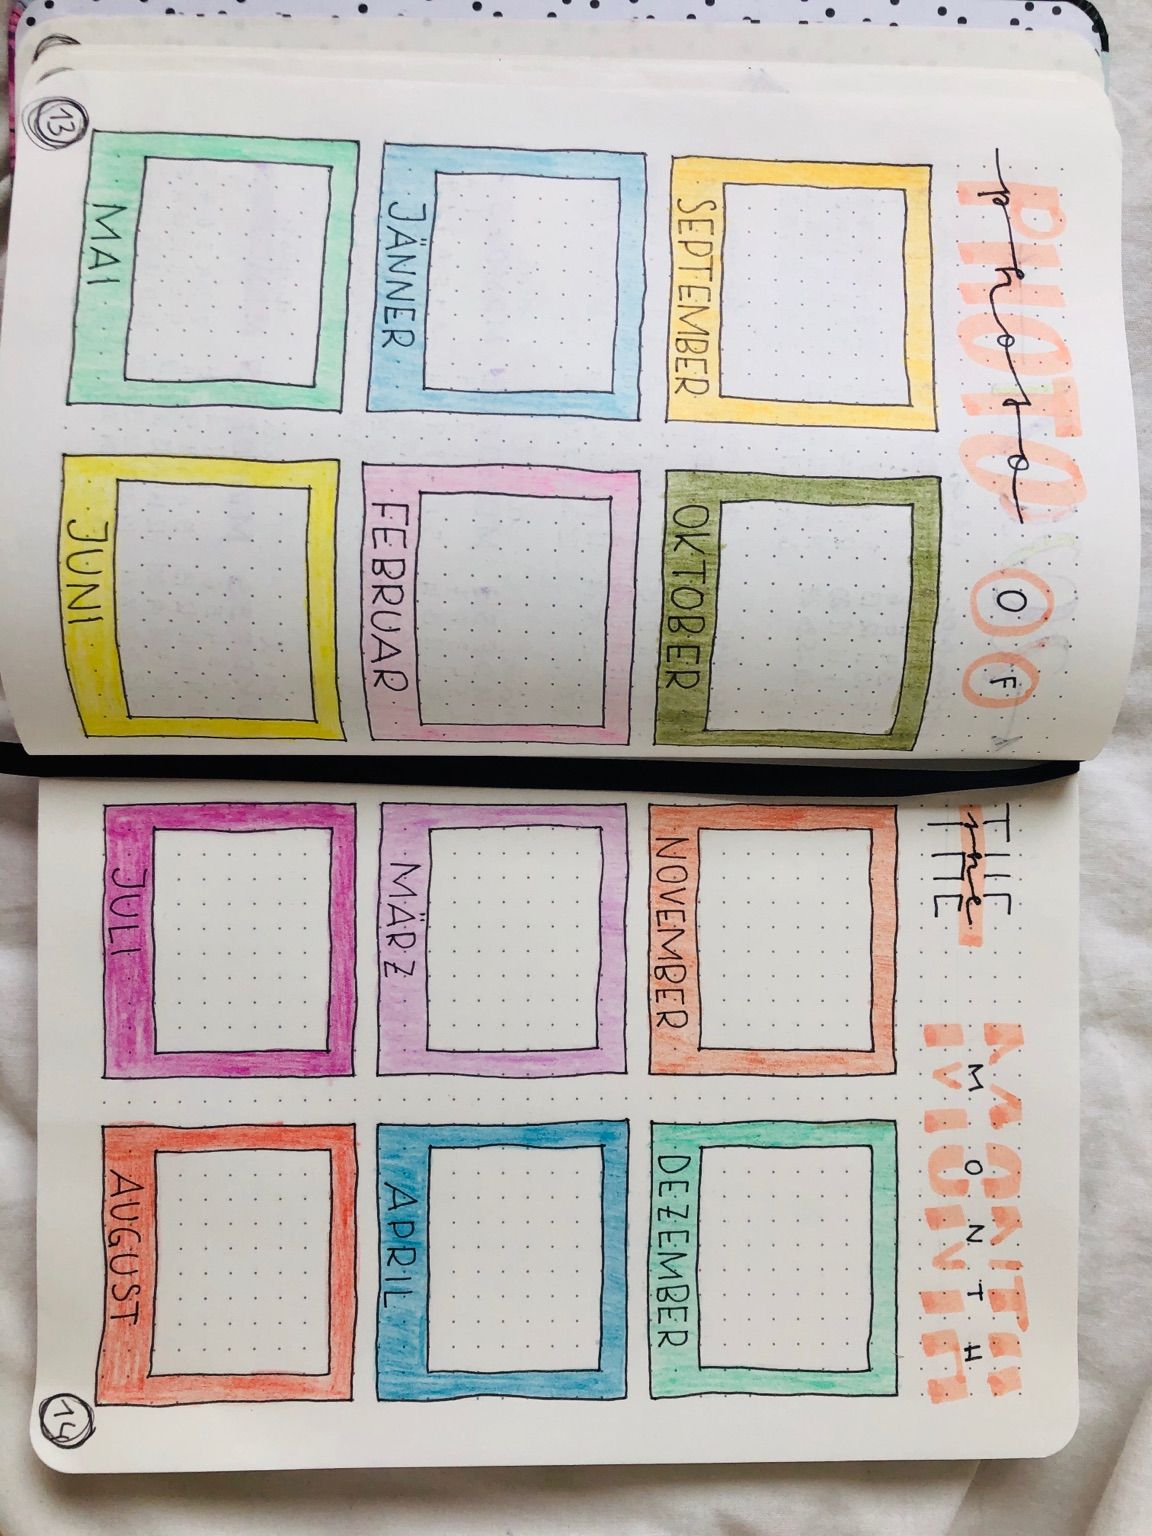 PHOTO photo OF THE the MONTH MONTH
SEPTEMBER OKTOBER NOVEMBER DEZEMBER
JÄNNER FEBRUAR MÄRZ APRIL
MAI JUNI JULI AUGUST
13 14